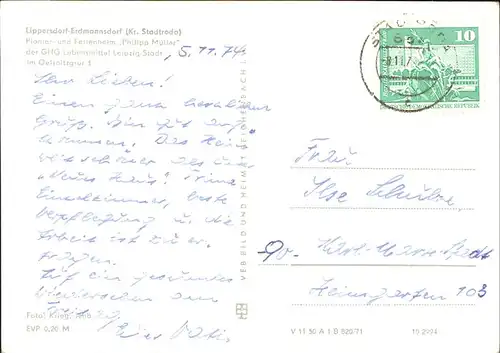 Lippersdorf-Erdmannsdorf (Kr. Stadtroda)
Pionier- und Ferienheim „Philipp Müller"
der GHG Lebensmittel Leipzig-Stadt
Im Oelseltzgrur 1
5.11.74
Ihr Lieben!
Einen ganz herzlichen
Gruß. Bin gut ange-
kommen. Das Heim
ist schöner als das
"Neues Haus". Prima
Einzelzimmer, beste
Verpflegung u. die
Arbeit ist zu er-
tragen.
Auf ein gesundes
Wiedersehen am
Freitag
Euer Vati.
Foto: Krieg, Jena
EVP 0,20 M
VEB BILD UND HEIM REICHENBACH I. V.
10
DEUTSCHE DEMOKRATISCHE REPUBLIK
STADTRODA
Frau
Ilse Schulze
90- Karl-Marx-Stadt
Heimgarten 103
V 11 50 A 1 B 520/71